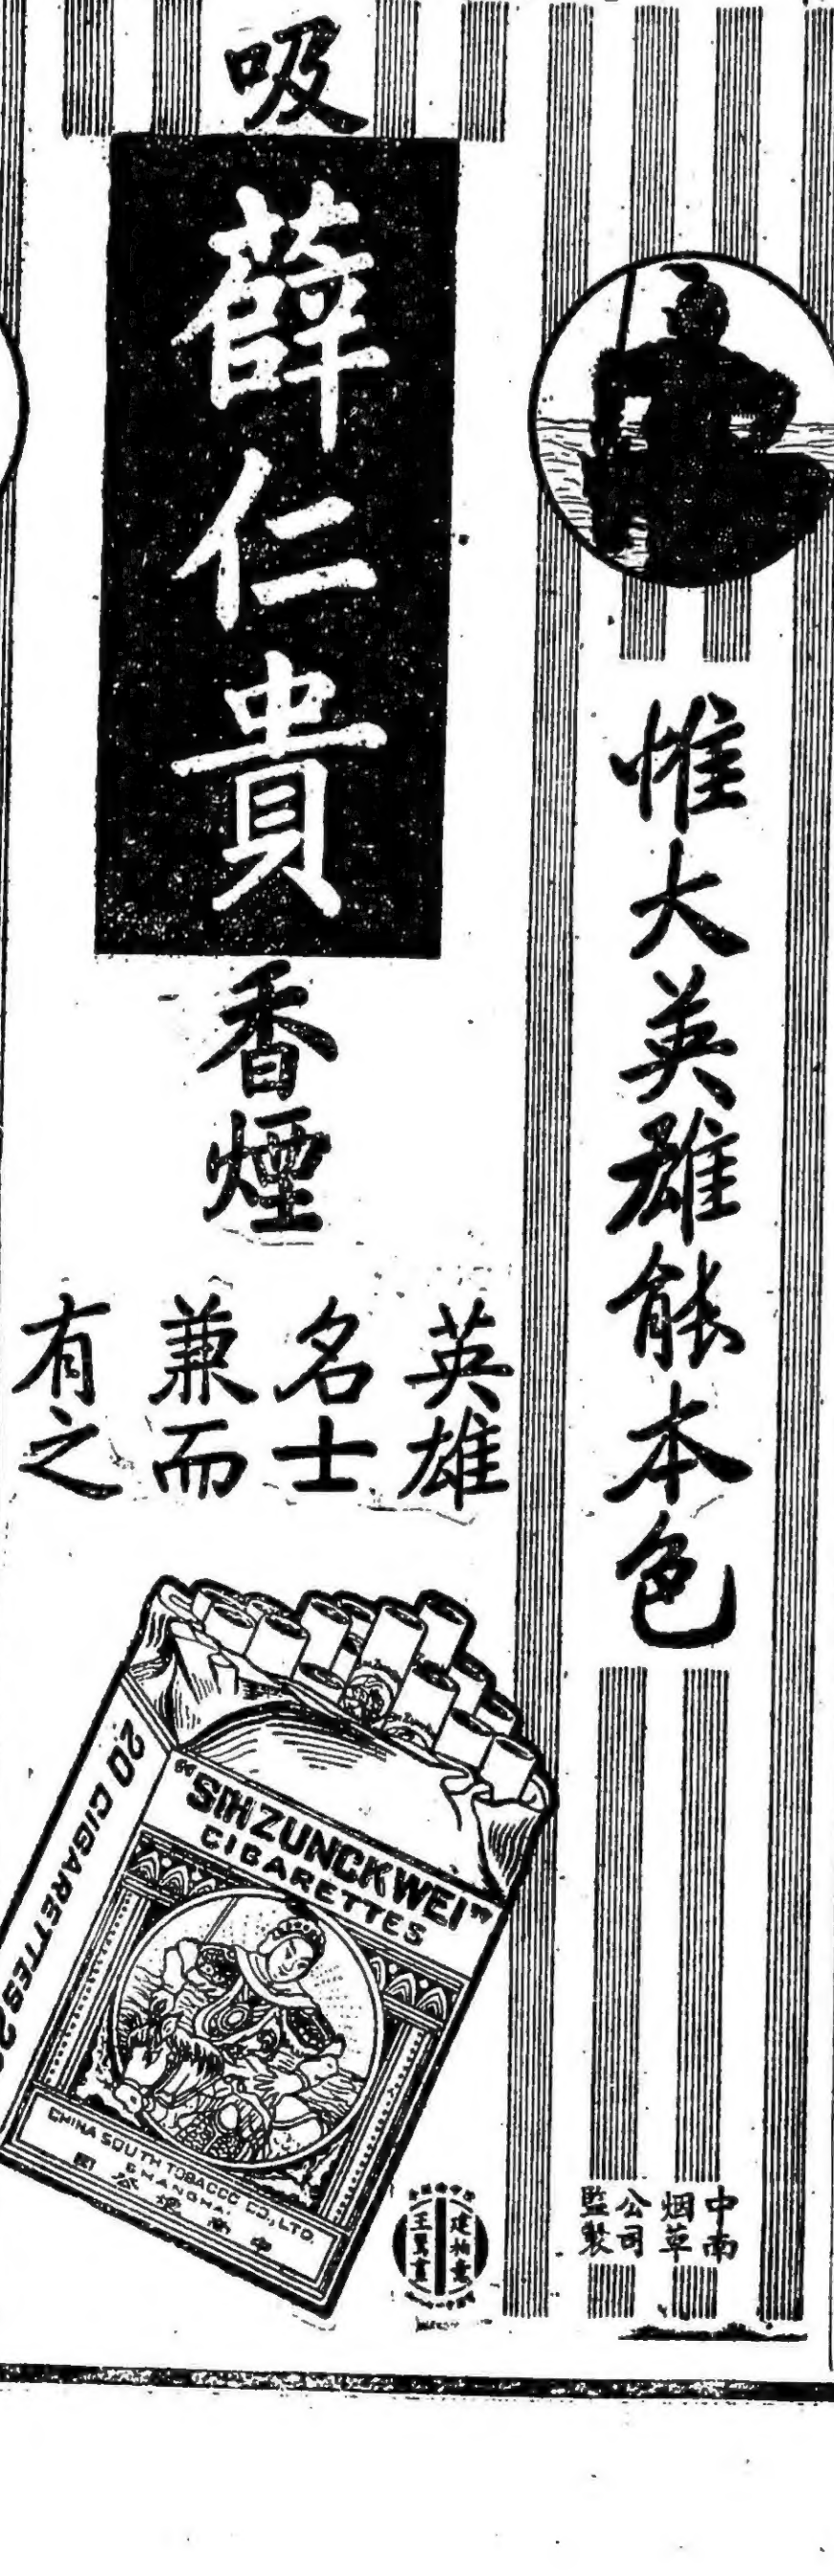 惟大英雄能本色
中南
烟草
公司
監製
吸薛仁貴香煙
英雄
名士
兼而
有之
20 CIGARETTES 2
"SIHZUNCKWEI"
CIGARETTES
CHINA SOUTH TOBACCO CO., LTD.
SHANGHAI